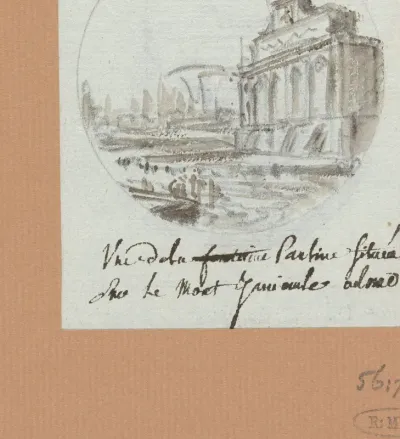 Vue de la fontaine Pauline située
sur le Mont Janicule a Rome
561
R: M